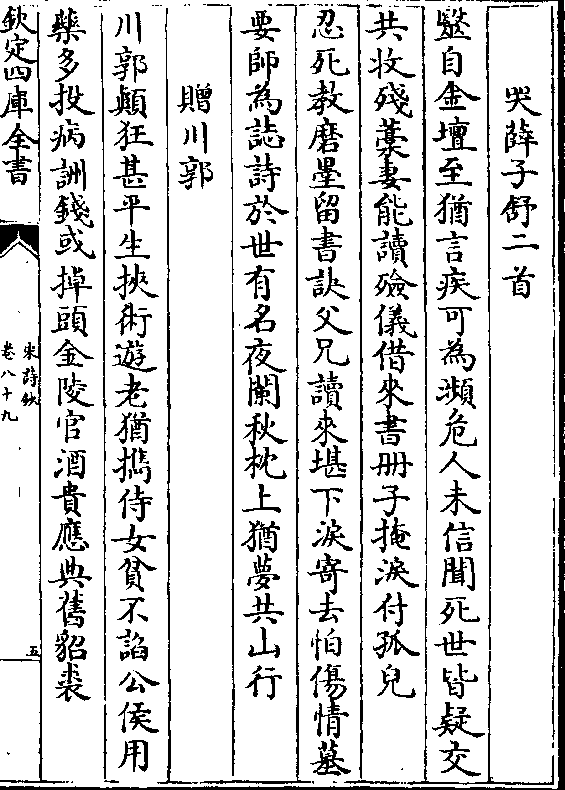 哭薛子舒二首
毉自金壇至猶言疾可為瀕危人未信聞死世皆疑交
共收殘藁妻能讀殮儀借來書册子掩淚付孤兒
忍死教磨墨留書訣父兄讀來堪下淚寄去怕傷情墓
要師為誌詩於世有名夜闌秋枕上猶夢共山行
贈川郭
川郭顛狂甚平生挾術遊老猶攜侍女貧不諂公侯用
藥多投病詶錢或掉頭金陵官酒貴應典舊貂裘
欽定四庫全書
宋詩鈔
卷八十九
五